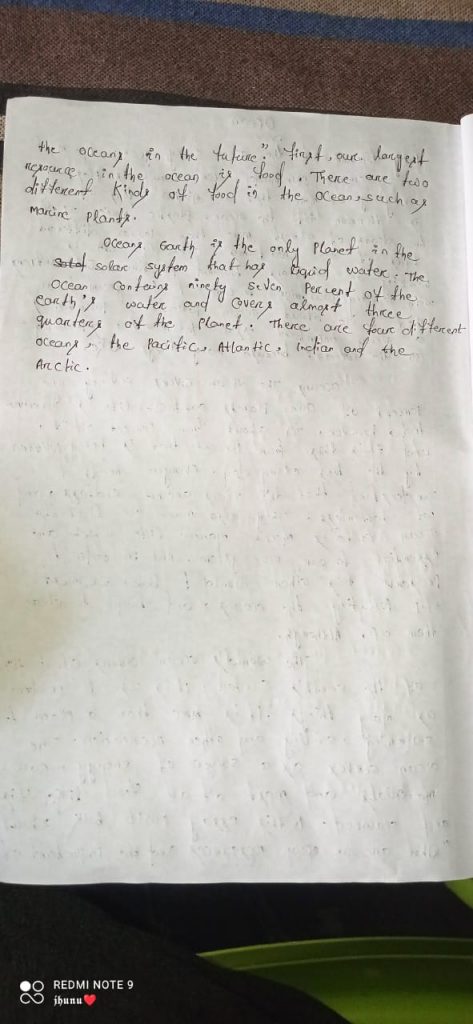 the oceans in the future." first, our largest
resource in the ocean is food. There are two
different kinds of food in the ocean, such as
marine plants.
Oceans Earth is the only planet in the
solar system that has liquid water. The
ocean contains ninety seven percent of the
earth's water and covers almost three
quarters of the planet. There are four different
oceans, the Pacific, Atlantic, Indian and the
Arctic.
REDMI NOTE 9
jhunu❤️